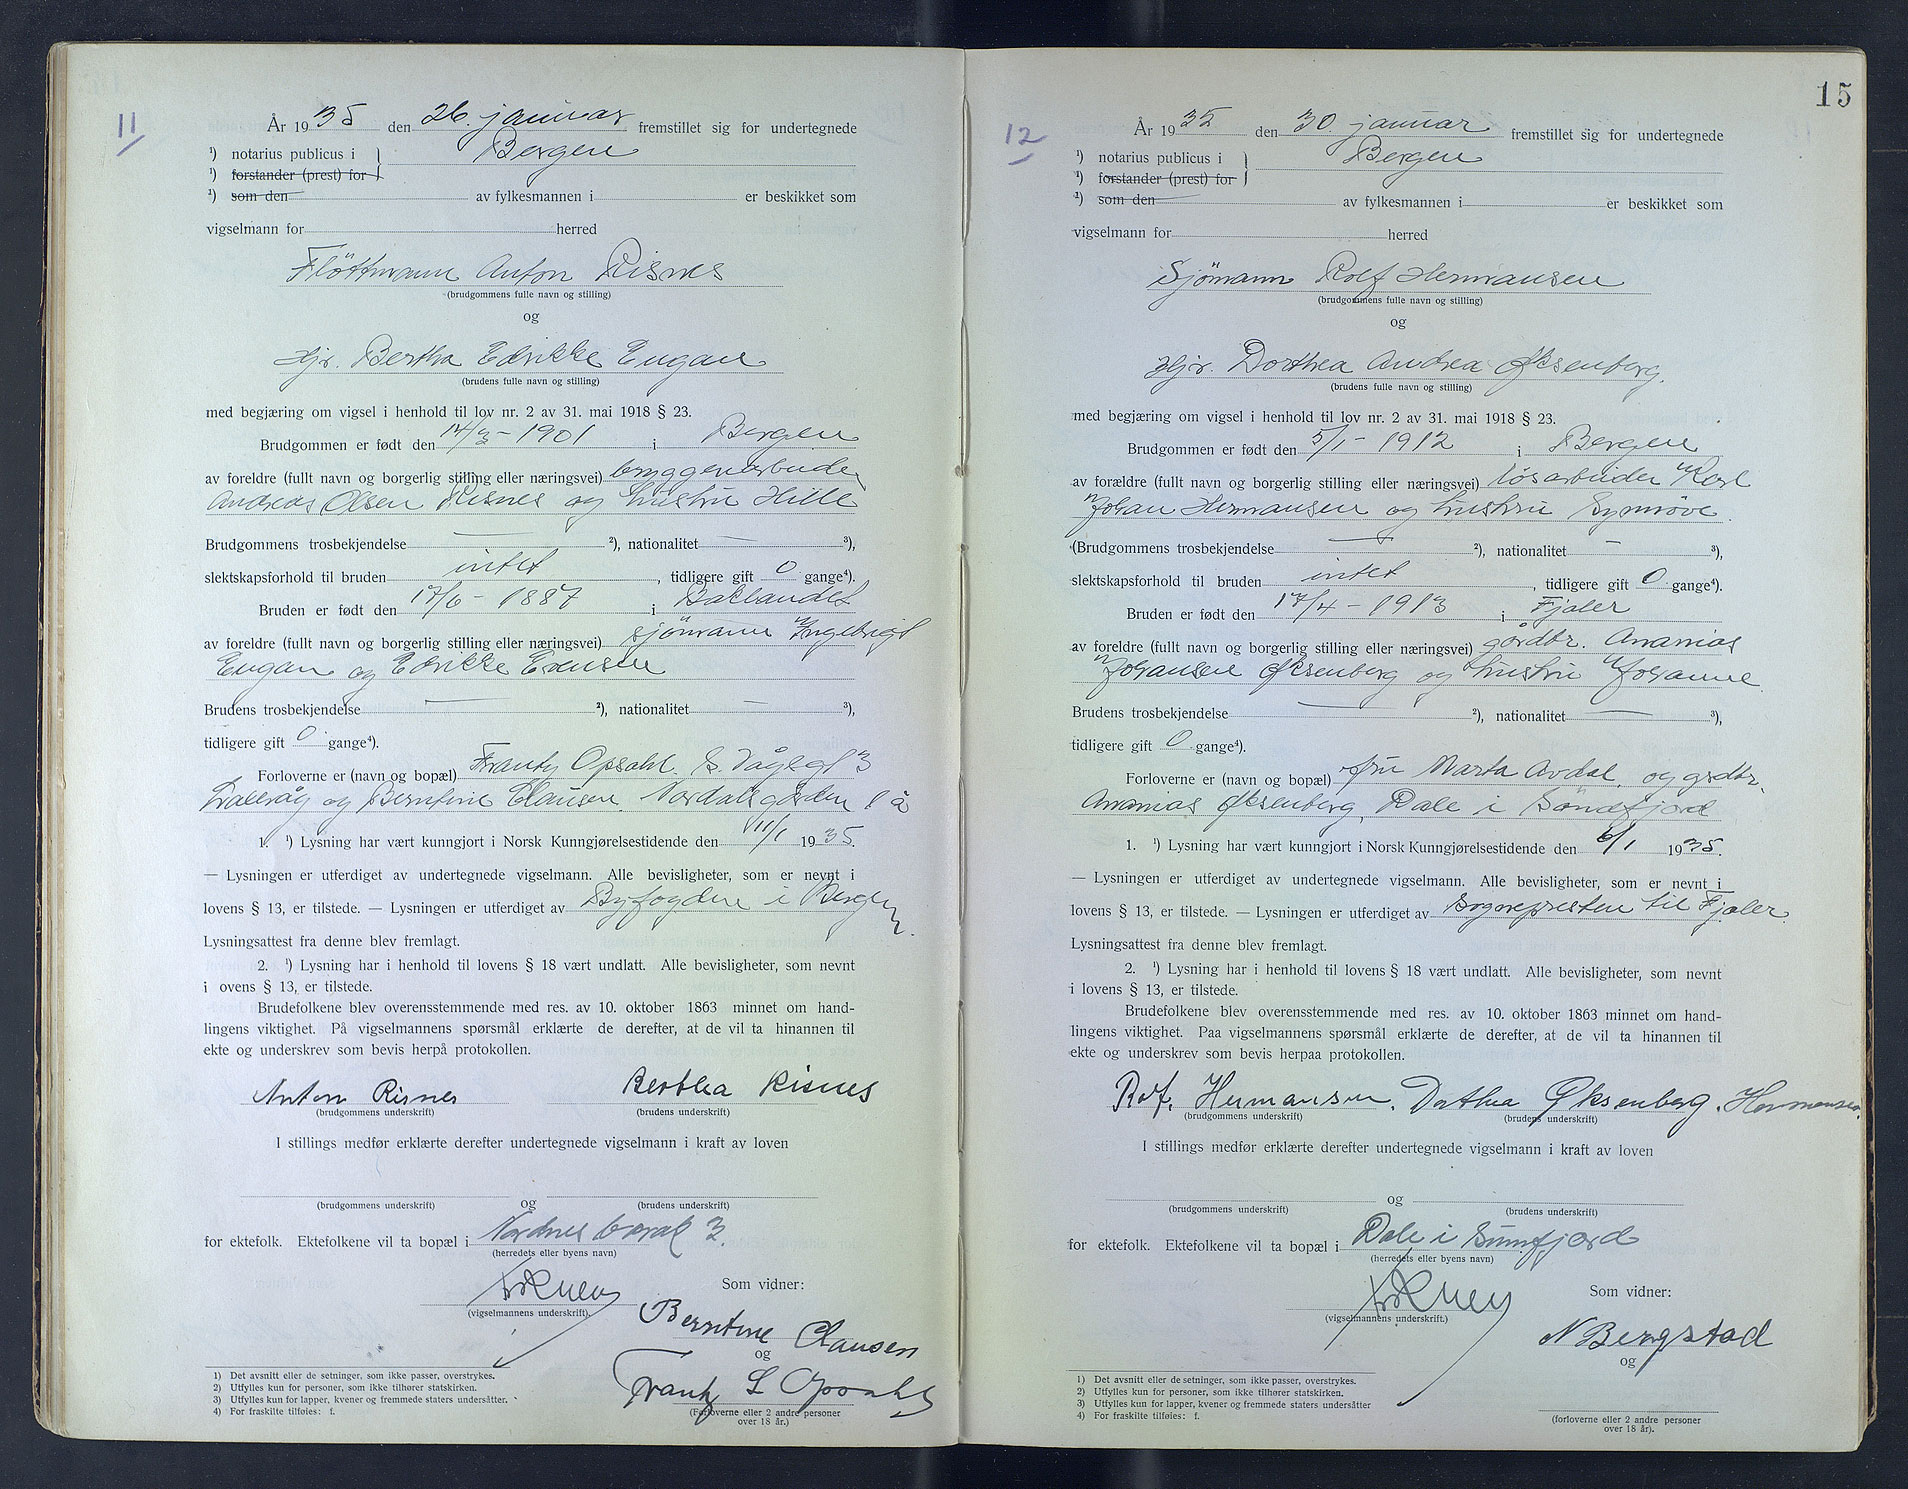 11
År 1935 den 26. januar fremstillet sig for undertegnede
¹) notarius publicus i } Bergen
¹) forstander (prest) for
¹) som den av fylkesmannen i er beskikket som
vigselmann for herred
Fløttmann Anton Risnes
(brudgommens fulle navn og stilling)
og
Hjr. Bertha Edrikke Eugan
(brudens fulle navn og stilling)
med begjæring om vigsel i henhold til lov nr. 2 av 31. mai 1918 § 23.
Brudgommen er født den 14/3 - 1901 i Bergen
av foreldre (fullt navn og borgerlig stilling eller næringsvei) bryggearbeider
Andreas Olsen Risnes og hustru Hille
Brudgommens trosbekjendelse — ²), nationalitet — ³),
slektskapsforhold til bruden intet, tidligere gift 0 gange⁴).
Bruden er født den 17/6 - 1887 i Baklandet
av foreldre (fullt navn og borgerlig stilling eller næringsvei) sjömann Ingebrigt
Eugan og Edrikke Evensen
Brudens trosbekjendelse — ²), nationalitet — ³),
tidligere gift 0 gange⁴).
Forloverne er (navn og bopæl) Frantz Opsahl. S. Vågegt 3
Laksevåg og Berntine Clausen. Nordalsgården 1 a
1. ¹) Lysning har vært kunngjort i Norsk Kunngjørelsestidende den 11/1 1935.
— Lysningen er utferdiget av undertegnede vigselmann. Alle bevisligheter, som er nevnt i
lovens § 13, er tilstede. — Lysningen er utferdiget av Byfogden i Bergen.
Lysningsattest fra denne blev fremlagt.
2. ¹) Lysning har i henhold til lovens § 18 vært undlatt. Alle bevisligheter, som nevnt
i ovens § 13, er tilstede.
Brudefolkene blev overensstemmende med res. av 10. oktober 1863 minnet om hand-
lingens viktighet. På vigselmannens spørsmål erklærte de derefter, at de vil ta hinannen til
ekte og underskrev som bevis herpå protokollen.
Anton Risnes Berthea Risnes
(brudgommens underskrift) (brudens underskrift)
I stillings medfør erklærte derefter undertegnede vigselmann i kraft av loven
og
(brudgommens underskrift) (brudens underskrift)
for ektefolk. Ektefolkene vil ta bopæl i Nordnes barak 3.
(herredets eller byens navn)
Som vidner:
(vigselmannens underskrift).
Berntine Clausen
og
Frantz L Opsahl
(Forloverne eller 2 andre personer
over 18 år.)
1) Det avsnitt eller de setninger, som ikke passer, overstrykes.
2) Utfylles kun for personer, som ikke tilhører statskirken.
3) Utfylles kun for lapper, kvener og fremmede staters undersåtter.
4) For fraskilte tilføies: f.
15
12
År 1935 den 30. januar fremstillet sig for undertegnede
¹) notarius publicus i } Bergen
¹) forstander (prest) for
¹) som den av fylkesmannen i er beskikket som
vigselmann for herred
Sjömann Rolf Hermansen
(brudgommens fulle navn og stilling)
og
Hjr. Dorthea Andrea Øksenberg.
(brudens fulle navn og stilling)
med begjæring om vigsel i henhold til lov nr. 2 av 31. mai 1918 § 23.
Brudgommen er født den 5/1 - 1912 i Bergen
av forældre (fullt navn og borgerlig stilling eller næringsvei) løsarbeider Karl
Johan Hermansen og hustru Synnöve
(Brudgommens trosbekjendelse — ²), nationalitet — ³),
slektskapsforhold til bruden intet, tidligere gift 0 gange⁴).
Bruden er født den 17/4 - 1913 i Fjaler
av foreldre (fullt navn og borgerlig stilling eller næringsvei) gårdbr. Ananias
Johansen Øksenberg og hustru Johanne
Brudens trosbekjendelse — ²), nationalitet — ³),
tidligere gift 0 gange⁴).
Forloverne er (navn og bopæl) fru Marta Avdal. og grdbr.
Ananias Øksenberg, Dale i Söndfjord
1. ¹) Lysning har vært kunngjort i Norsk Kunngjørelsestidende den 6/1 1935.
— Lysningen er utferdiget av undertegnede vigselmann. Alle bevisligheter, som er nevnt i
lovens § 13, er tilstede. — Lysningen er utferdiget av Sognepresten til Fjaler.
Lysningsattest fra denne blev fremlagt.
2. ¹) Lysning har i henhold til lovens § 18 vært undlatt. Alle bevisligheter, som nevnt
i lovens § 13, er tilstede.
Brudefolkene blev overensstemmende med res. av 10. oktober 1863 minnet om hand-
lingens viktighet. Paa vigselmannens spørsmål erklærte de derefter, at de vil ta hinannen til
ekte og underskrev som bevis herpaa protokollen.
Rolf. Hermansen. Dorthea Øksenberg. Hermansen.
(brudgommens underskrift) (brudens underskrift)
I stillings medfør erklærte derefter undertegnede vigselmann i kraft av loven
og
(brudgommens underskrift) (brudens underskrift)
for ektefolk. Ektefolkene vil ta bopæl i Dale i Sunnfjord
(herredets eller byens navn)
Som vidner:
(vigselmannens underskrift.)
N Bergstad
og
(forloverne eller 2 andre personer
over 18 år).
1) Det avsnitt eller de setninger, som ikke passer, overstrykes.
2) Utfylles kun for personer, som ikke tilhører statskirken.
3) Utfylles kun for lapper, kvener og fremmede staters undersåtter
4) For fraskilte tilføies: f.